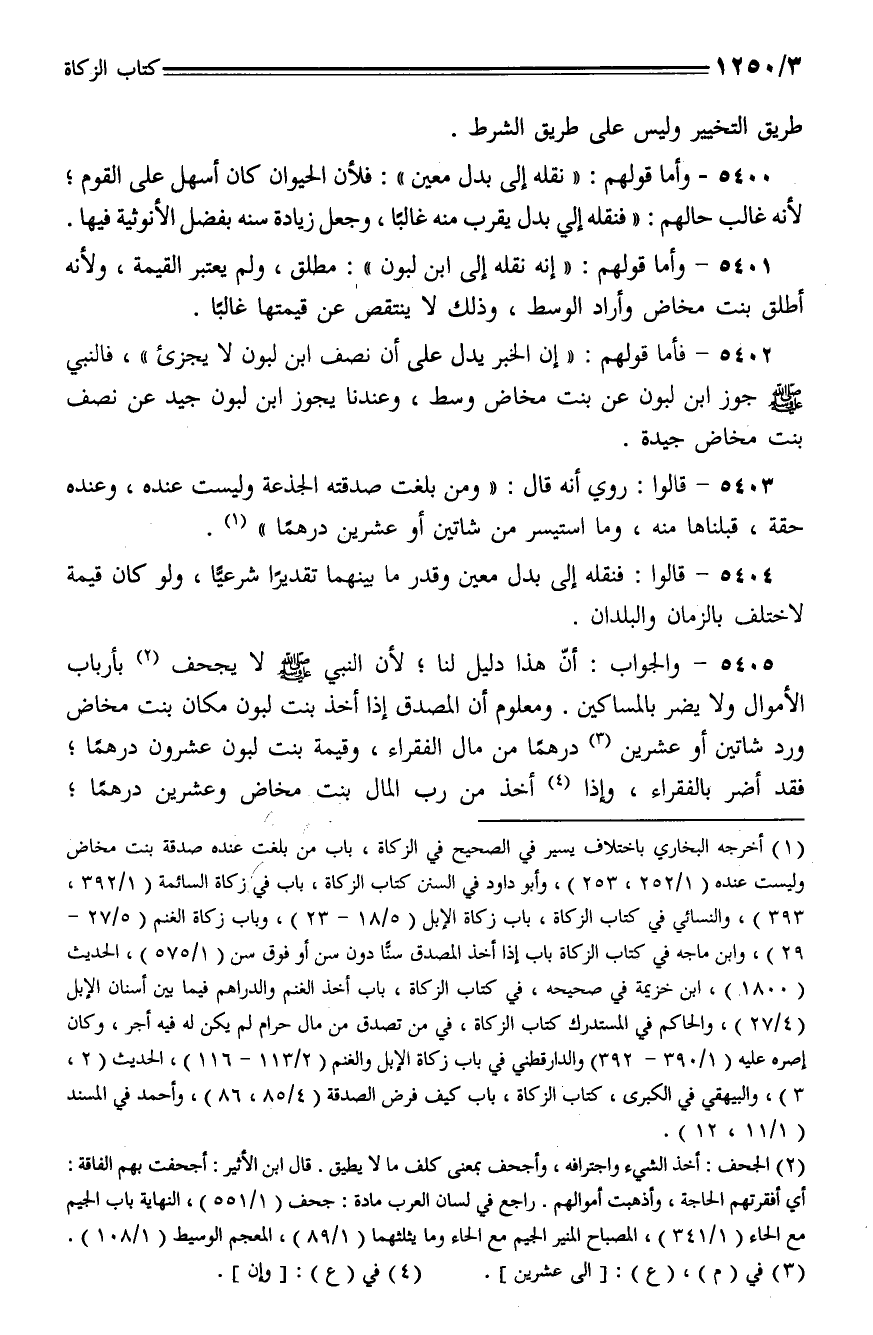 ١٢٥٠/٣ كتاب الزكاة
طريق التخيير وليس على طريق الشرط .
٥٤٠٠ - وأما قولهم : « نقله إلى بدل معين » : فلأن الحيوان كان أسهل على القوم ؛
لأنه غالب حالهم : « فنقله إلي بدل يقرب منه غالبًا ، وجعل زيادة سنه بفضل الأنوثية فيها .
٥٤٠١ – وأما قولهم : « إنه نقله إلى ابن لبون » : مطلق ، ولم يعتبر القيمة ، ولأنه
أطلق بنت مخاض وأراد الوسط ، وذلك لا ينتقص عن قيمتها غالبًا .
٥٤٠٢ – فأما قولهم : « إن الخبر يدل على أن نصف ابن لبون لا يجزئ » ، فالنبي
ﷺ جوز ابن لبون عن بنت مخاض وسط ، وعندنا يجوز ابن لبون جيد عن نصف
بنت مخاض جيدة .
٥٤٠٣ – قالوا : روي أنه قال : « ومن بلغت صدقته الجذعة وليست عنده ، وعنده
حقة ، قبلناها منه ، وما استيسر من شاتين أو عشرين درهمًا » (١) .
٥٤٠٤ – قالوا : فنقله إلى بدل معين وقدر ما بينهما تقديرًا شرعيًّا ، ولو كان قيمة
لاختلف بالزمان والبلدان .
٥٤٠٥ – والجواب : أنّ هذا دليل لنا ؛ لأن النبي ﷺ لا يجحف (٢) بأرباب
الأموال ولا يضر بالمساكين . ومعلوم أن المصدق إذا أخذ بنت لبون مكان بنت مخاض
ورد شاتين أو عشرين (٣) درهمًا من مال الفقراء ، وقيمة بنت لبون عشرون درهمًا ؛
فقد أضر بالفقراء ، وإذا (٤) أخذ من رب المال بنت مخاض وعشرين درهمًا ؛
(١) أخرجه البخاري باختلاف يسير في الصحيح في الزكاة ، باب من بلغت عنده صدقة بنت مخاض
وليست عنده ( ٢٥٢/١ ، ٢٥٣ ) ، وأبو داود في السنن كتاب الزكاة ، باب في زكاة السائمة ( ٣٩٢/١ ،
٣٩٣ ) ، والنسائي في كتاب الزكاة ، باب زكاة الإبل ( ١٨/٥ – ٢٣ ) ، وباب زكاة الغنم ( ٢٧/٥ –
٢٩ ) ، وابن ماجه في كتاب الزكاة باب إذا أخذ المصدق سنًّا دون سن أو فوق سن ( ٥٧٥/١ ) ، الحديث
( ١٨٠٠ ) ، ابن خزيمة في صحيحه ، في كتاب الزكاة ، باب أخذ الغنم والدراهم فيما بين أسنان الإبل
( ٢٧/٤ ) ، والحاكم في المستدرك كتاب الزكاة ، في من تصدق من مال حرام لم يكن له فيه أجر ، وكان
إصره عليه ( ٣٩٠/١ – ٣٩٢) والدارقطني في باب زكاة الإبل والغنم ( ١١٣/٢ – ١١٦ ) ، الحديث ( ٢ ،
٣ ) ، والبيهقي في الكبرى ، كتاب الزكاة ، باب كيف فرض الصدقة ( ٨٥/٤ ، ٨٦ ) ، وأحمد في المسند
( ١١/١ ، ١٢ ) .
(٢) الجحف : أخذ الشيء واجترافه ، وأجحف بمعنى كلف ما لا يطيق . قال ابن الأثير : أجحفت بهم الفاقة :
أي أفقرتهم الحاجة ، وأذهبت أموالهم . راجع في لسان العرب مادة : جحف ( ٥٥١/١ ) ، النهاية باب الجيم
مع الحاء ( ٣٤١/١ ) ، المصباح المنير الجيم مع الحاء وما يثلثهما ( ٨٩/١ ) ، المعجم الوسيط ( ١٠٨/١ ) .
(٣) في ( م ) ، ( ع ) : [ الى عشرين ] . (٤) في ( ع ) : [ وإن ] .